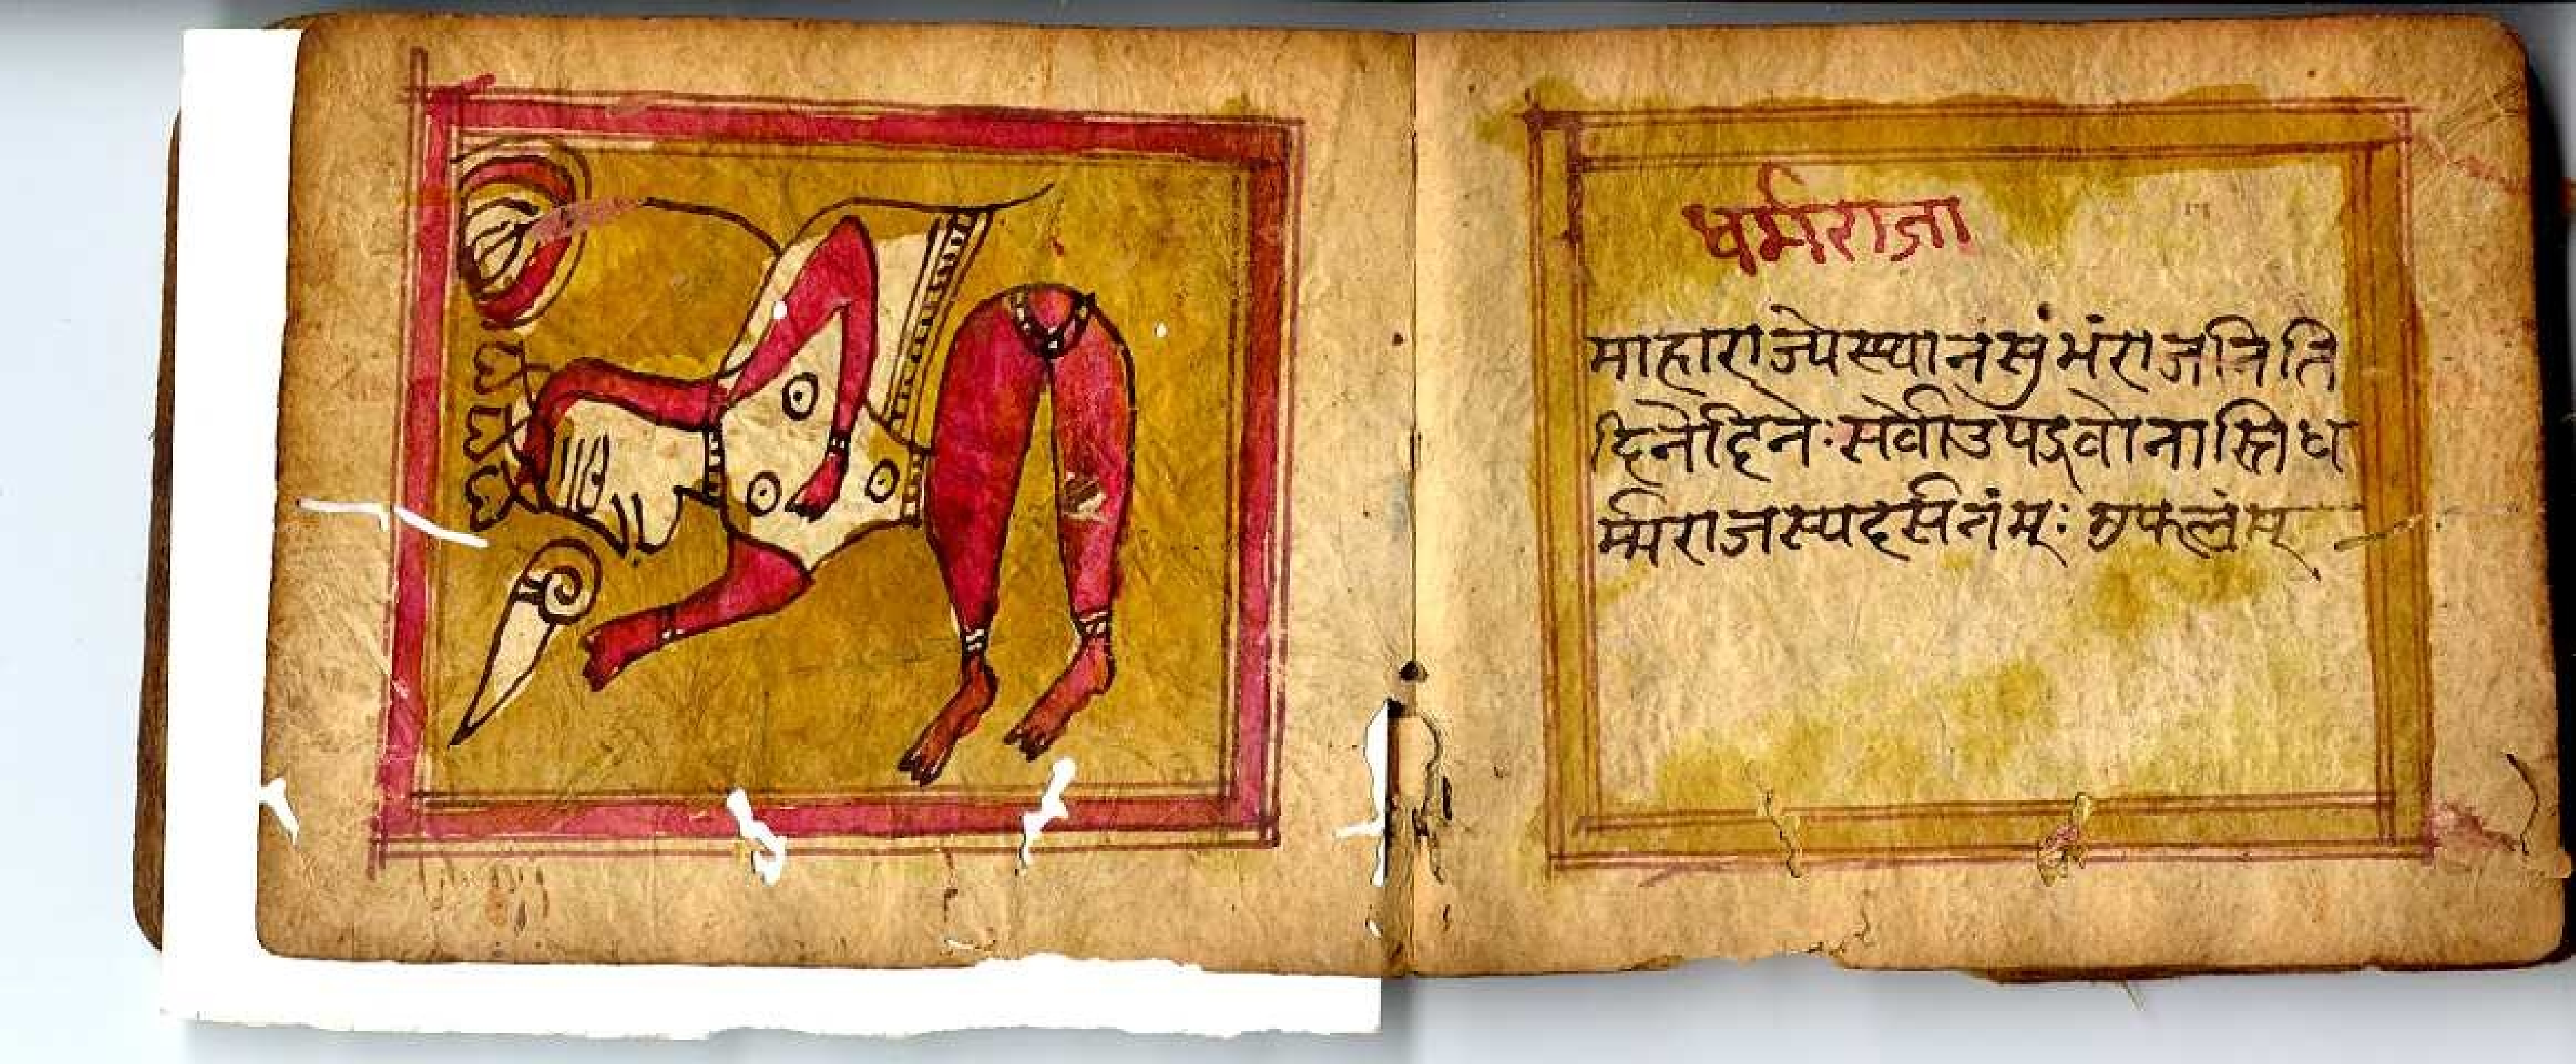 धर्मराजा
माहाराज्येस्थानसुंभंराजनिति
दिनेदिनेःसर्वोउपद्रवोनास्तिध
र्म्मराजस्यदर्सनंम्ः फलंम्